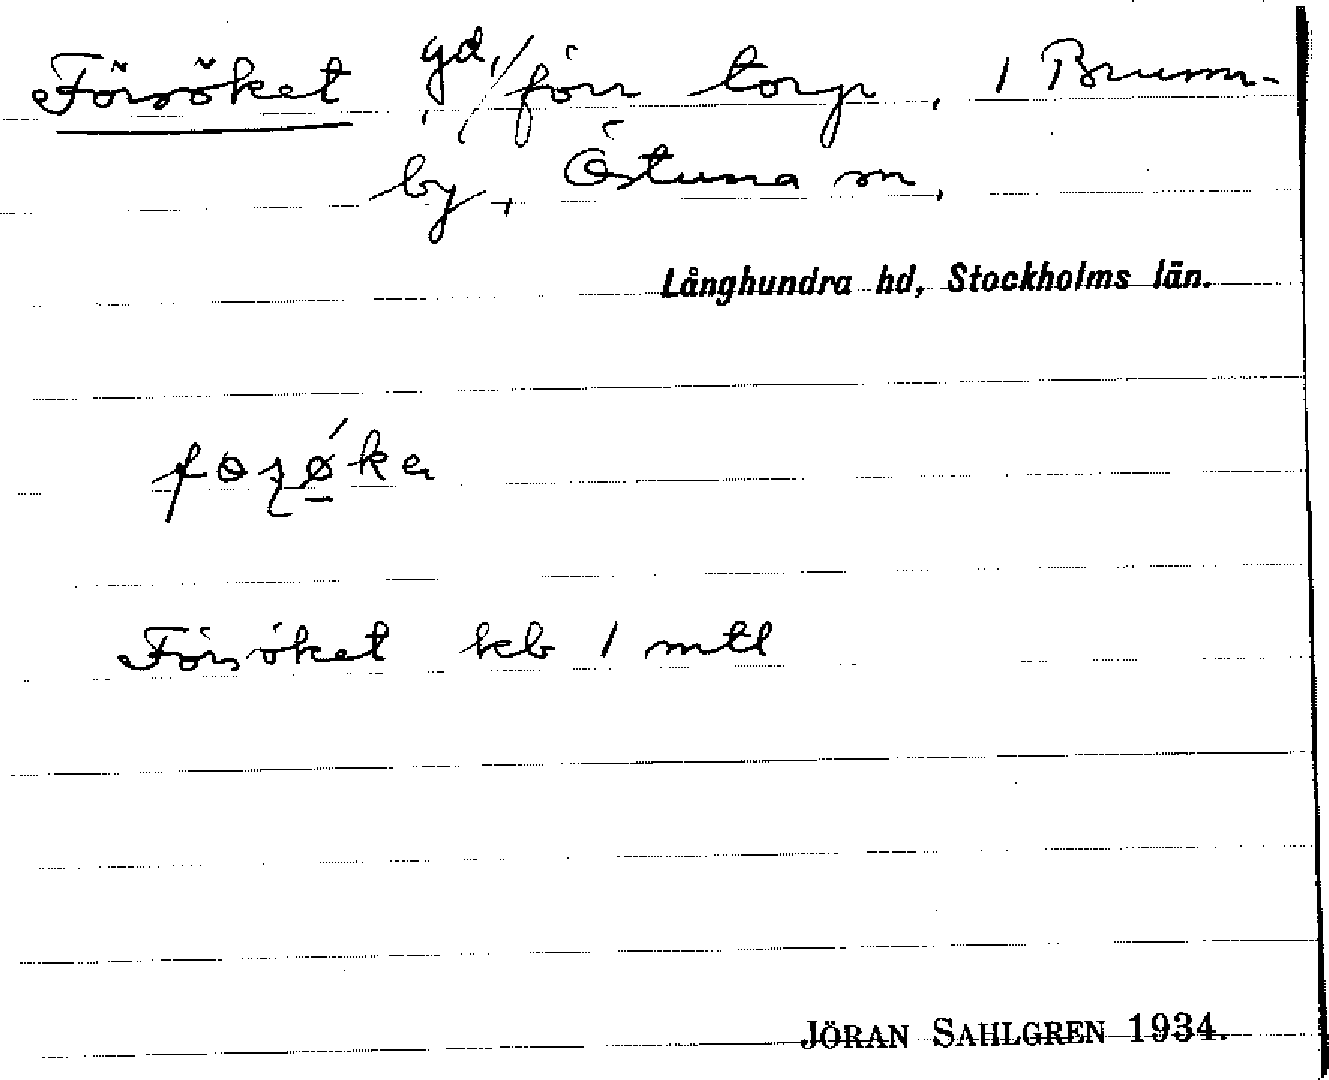 Försöket gd, / förr torp, i Brunn-
by, Östuna sn,
Långhundra hd, Stockholms län.
Försöket kb 1 mtl
JÖRAN SAHLGREN 1934.